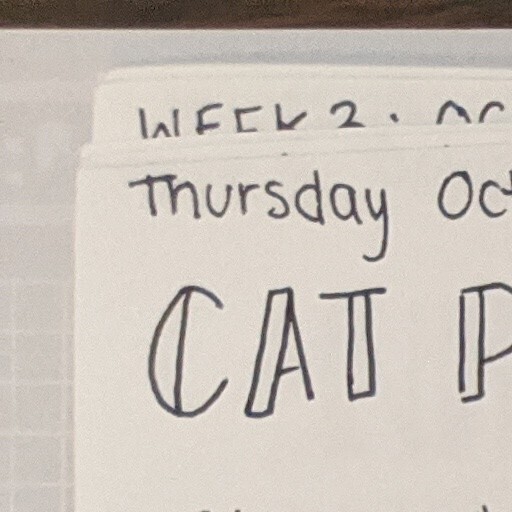 WEEK 2.
Thursday Oct
CAT P